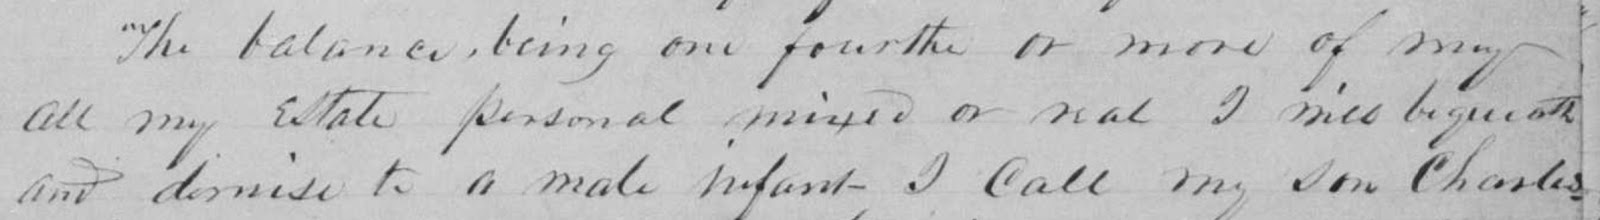 The balance, being one fourthe or more of my
all my Estate personal mixed or real I will bequeath
and demise to a male infant I Call my son Charles